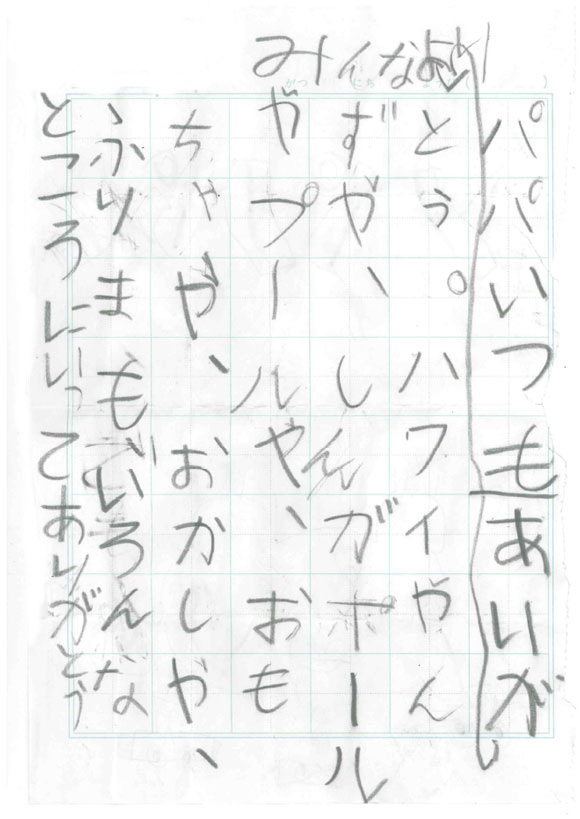 みんなより
パパいつもあいが
とぅパワイやん
ずや、しんがポール
やプールや、おも
ちゃや、おかしや、
ふりまもごいろんな
ところにいってありがとう